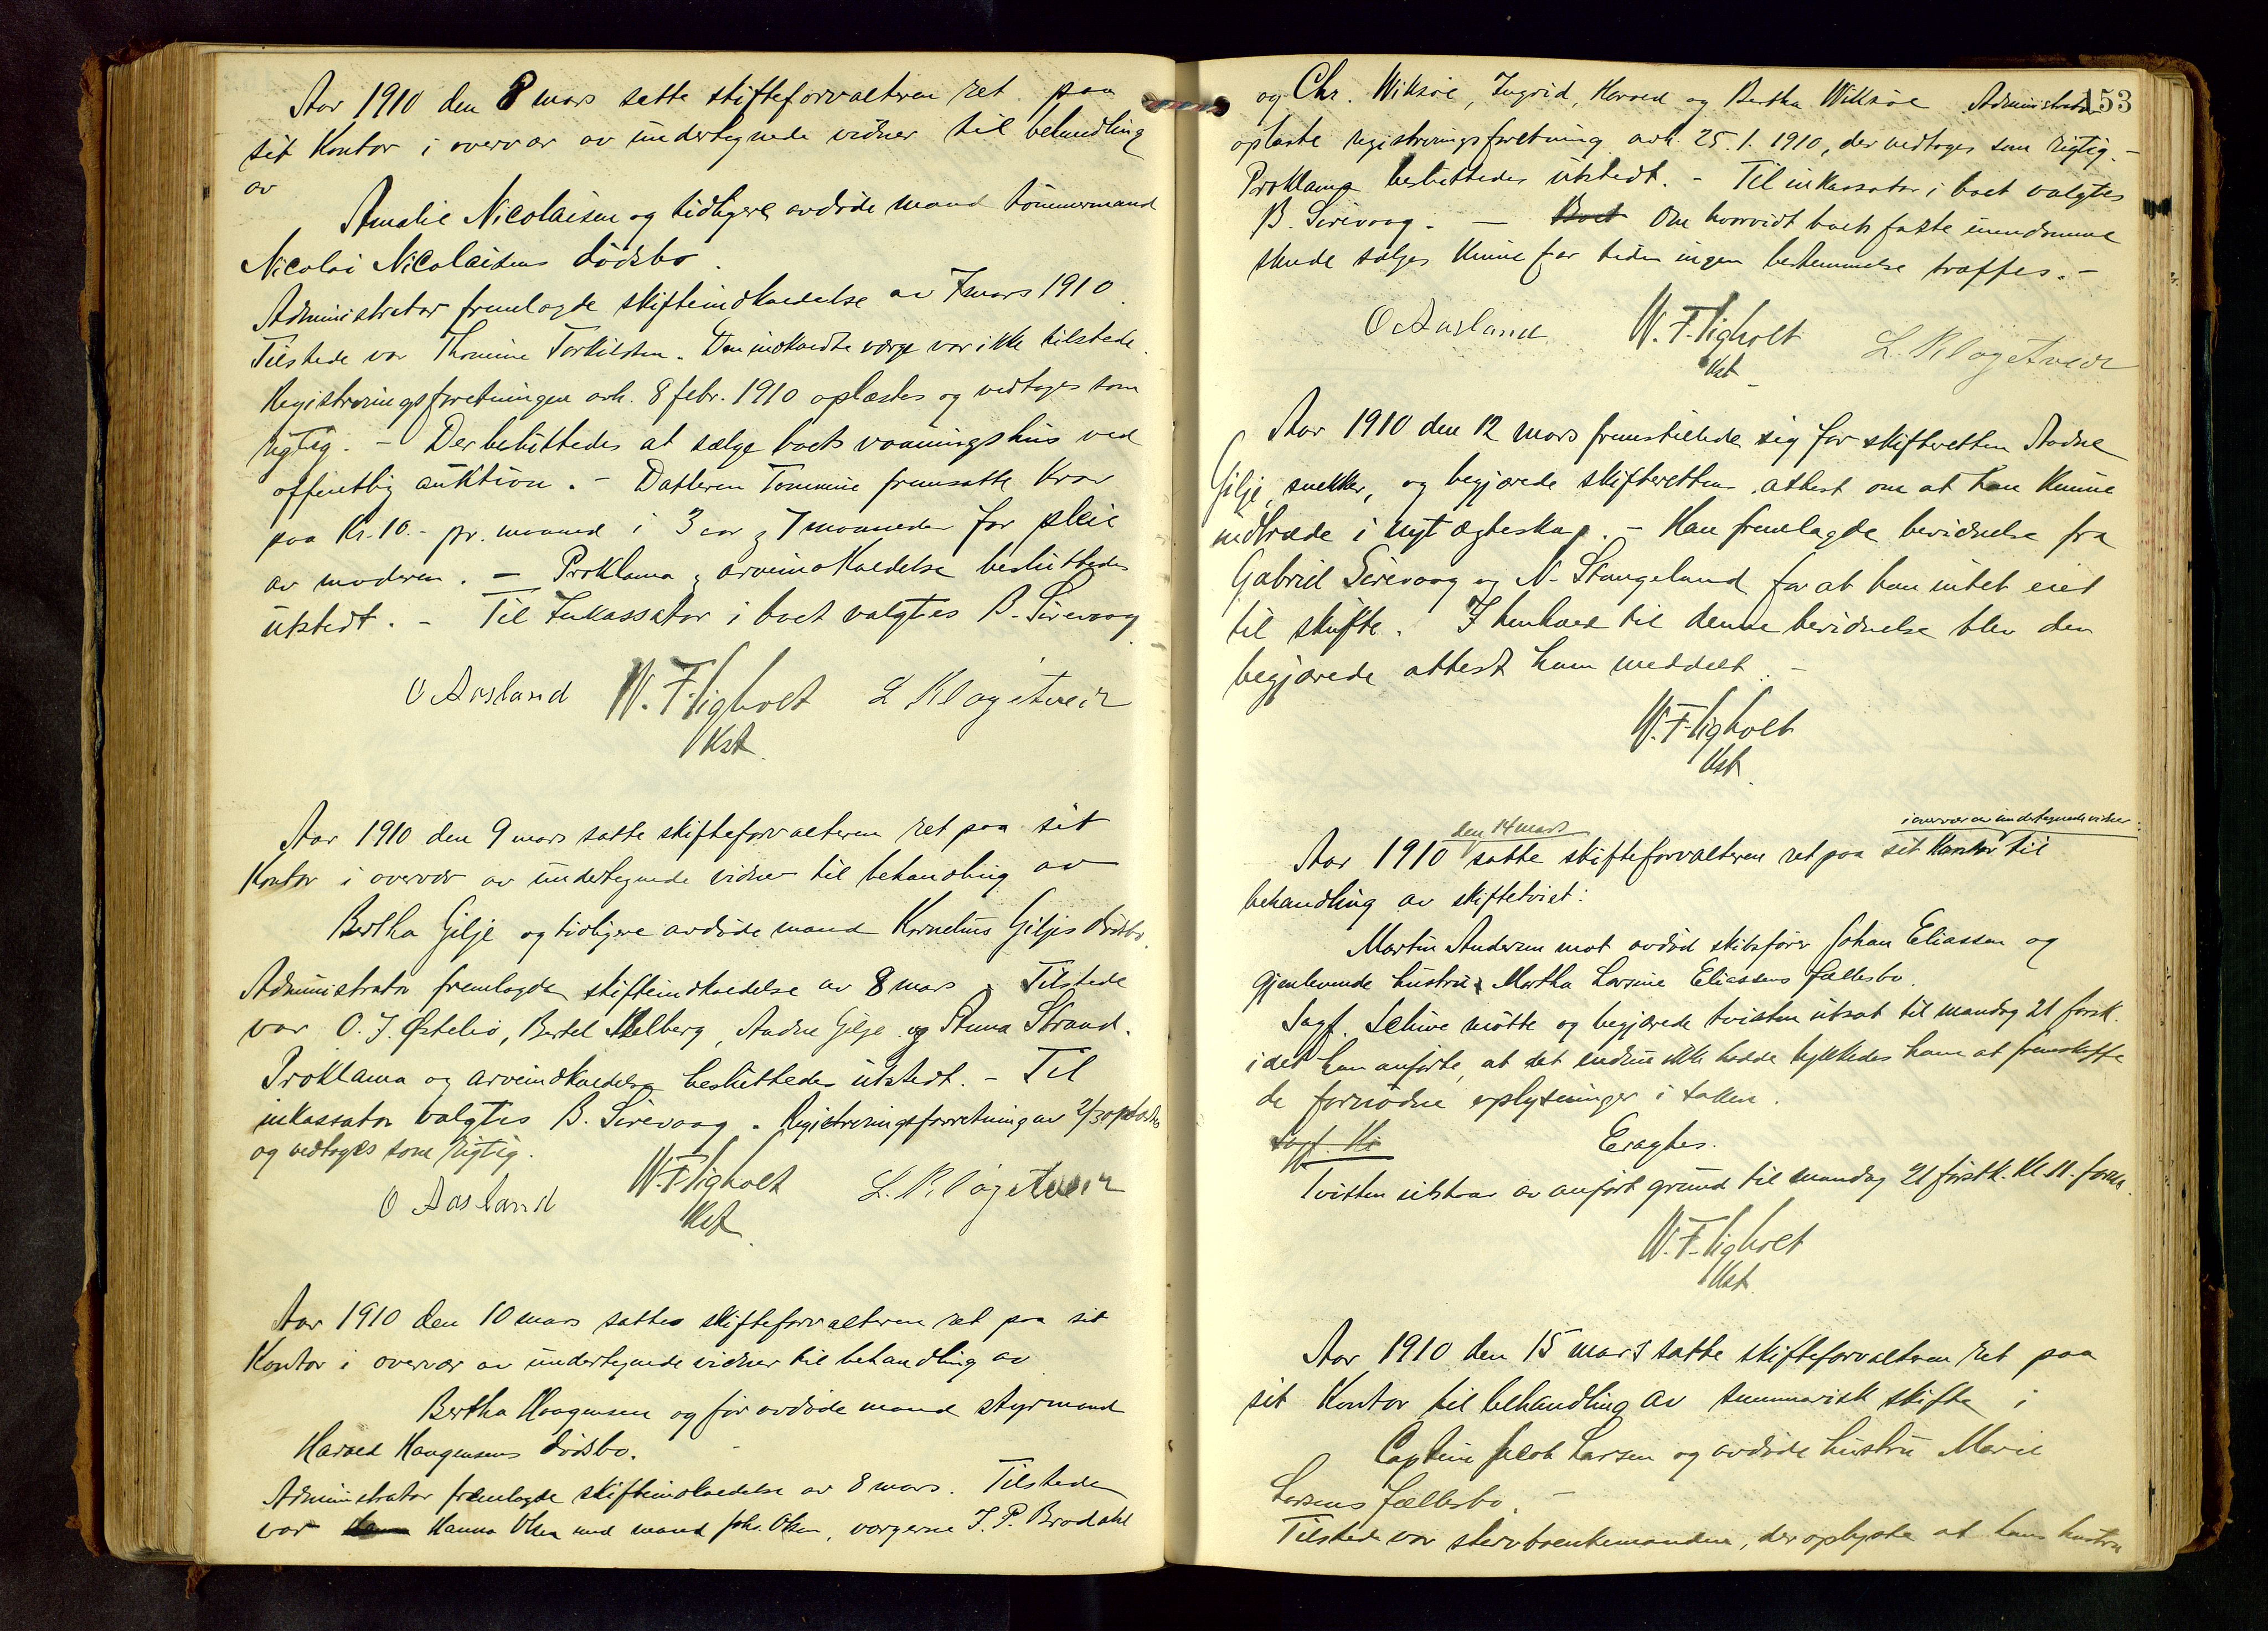 Aar 1910 den 8 mars satte skifteforvalteren ret paa
sit Kontor i overvær av undertegnede vidner til behandling
av
Amalie Nicolaisen og tidligere avdøde mand tømmermand
Nicolai Nicolaisens dødsbo.
Administrator fremlagde skifteindkaldelse av 7 mars 1910.
Tilstede var Thomine Torkildsen. Den indkaldte værge var ikke tilstede.
Registreringsforretningen avh. 8 febr. 1910 oplæstes og vedtoges som
rigtig. - Der besluttedes at sælge boets vaaningshus ved
offentlig auktion. - Datteren Tomine fremsatte krav
paa Kr. 10.- pr. maaned i 3 aar & 7 maaneder for pleie
av moderen. - Proklama & arveindkaldelse besluttedes
utstedt. - Til Inkassator i boet valgtes B. Sirevaag.
O Aasland W. F. Figholt L Klagetveit
Kst.
Aar 1910 den 9 mars satte skifteforvalteren ret paa sit
Kontor i overvær av undertegnede vidner til behandling av
Bertha Gilje og tidligere avdøde mand Kornelius Giljes dødsbo.
Administrator fremlagde skifteindkaldelse av 8 mars. Tilstede
var O. J. Østebø, Bertel Melberg, Aadne Gilje og Anna Strand.
Proklama og arveindkaldelse besluttedes utstedt. - Til
inkassator valgtes B. Sirevaag. Registreringsforretning av 2/3 oplæstes
og vedtoges som rigtig.
O Aasland W. Figholt L. Klagetveit
Kst.
Aar 1910 den 10 mars sattes skifteforvalteren ret paa sit
Kontor i overvær av undertegnede vidner til behandling av
Bertha Haagensen og før avdøde mand styrmand
Harald Haagensens dødsbo.
Administrator fremlagde skifteindkaldelse av 8 mars. Tilstede
var Hanna Olsen med mand Johs. Olsen, værgerne J. P. Brodahl
153
og Chr. Wiksøe, Ingrid, Harald og Bertha Wiksøe Administrator
oplæste registreringsforretning avh. 25.1.1910, der vedtoges som rigtig. -
Proklama besluttedes utstedt. - Til inkassator i boet valgtes
B. Sirevaag. - Boet Om hvorvidt boets faste eiendomme
skulde sælges kunne for tiden ingen bestemmelse træffes. -
O Aasland W. F. Figholt L. Klagetveit
Kst
Aar 1910 den 12 mars fremstillede sig for skifteretten Aadne
Gilje, snekker, og begjærede skifterettens attest om at han kunne
indtræde i nyt ægteskap. - Han fremlagde bevidnelse fra
Gabriel Sirevaag og N. Stangeland for at han intet eiet
til skifte. I henhold til denne bevidnelse blev den
begjærede attest ham meddelt. -
W. Figholt
Kst.
den 14 mars i overvær av undertegnede vidner:
Aar 1910 satte skifteforvalteren ret paa sit Kontor til
behandling av skiftetvist:
Martin Andersen mot avdød skibsfører Johan Eliassen og
gjenlevende hustru Martha Lovine Eliassens fællesbo.
Sagf. Schive møtte og begjærede tvisten utsat til mandag 21 førstk.
idet han anførte, at det endnu ikke hadde lykkedes ham at fremskaffe
de fornødne oplysninger i saken.
Sagf. Ki Eragtes.
Tvisten utstaar av anført grund til mandag 21 førstk. Kl. 11. form.
W. Figholt
Kst.
Aar 1910 den 15 mars satte skifteforvalteren ret paa
sit Kontor til behandling av summarisk skifte i
Captein Jakob Larsen og avdøde hustru Marie
Larsens fællesbo. -
Tilstede var stervboenkemanden, der oplyste at hans hustru